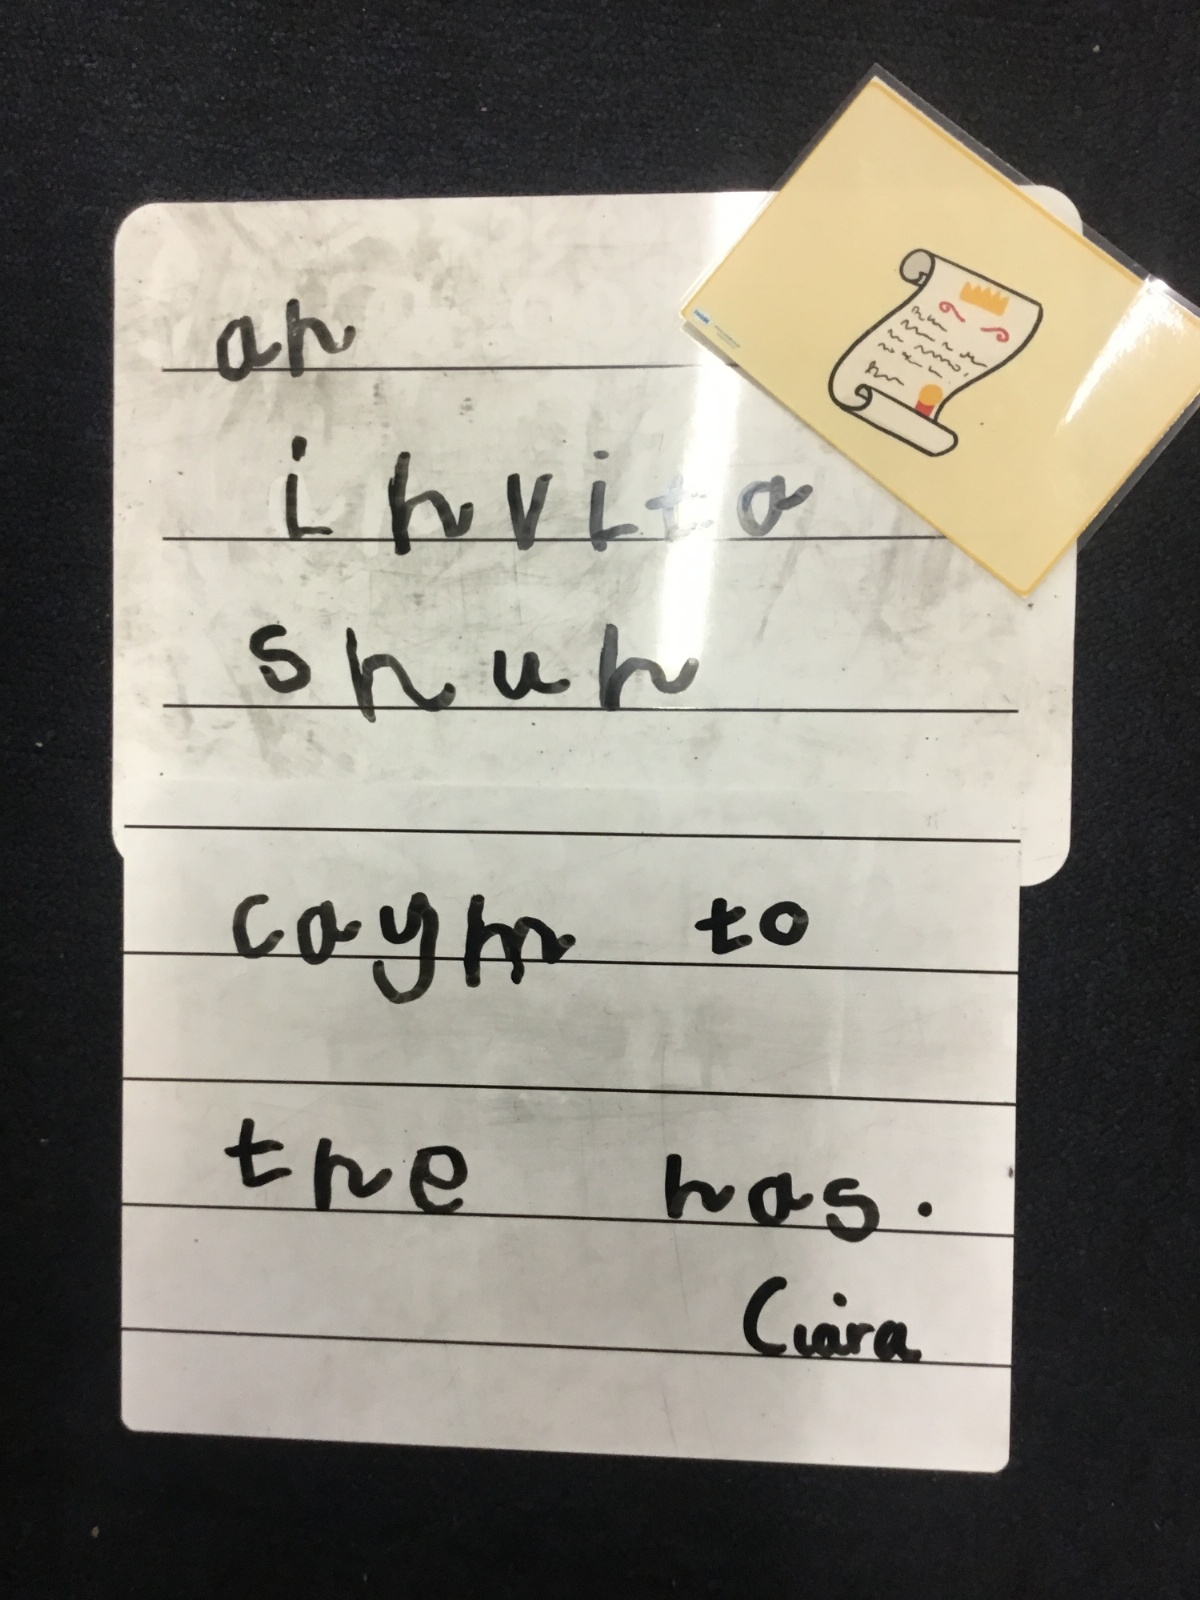 an
invita
shun
caym to
the has.
Ciara